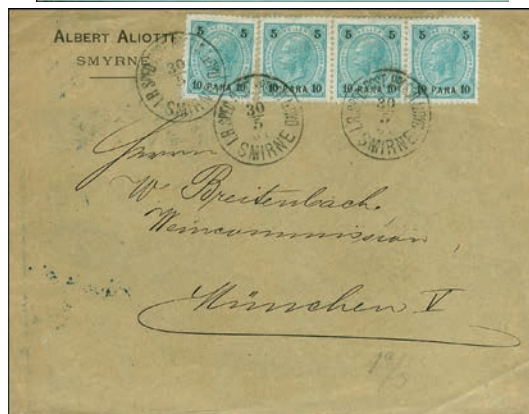 ALBERT ALIOTTI
SMYRNE
5 5 5 5 5 5 5 5
10 PARA 10 10 PARA 10 10 PARA 10 10 PARA 10
30
5
SMIRNE
30
5
SMIRNE
30
5
SMIRNE
Herrn
W Breitenbach
Weincommission,
München V